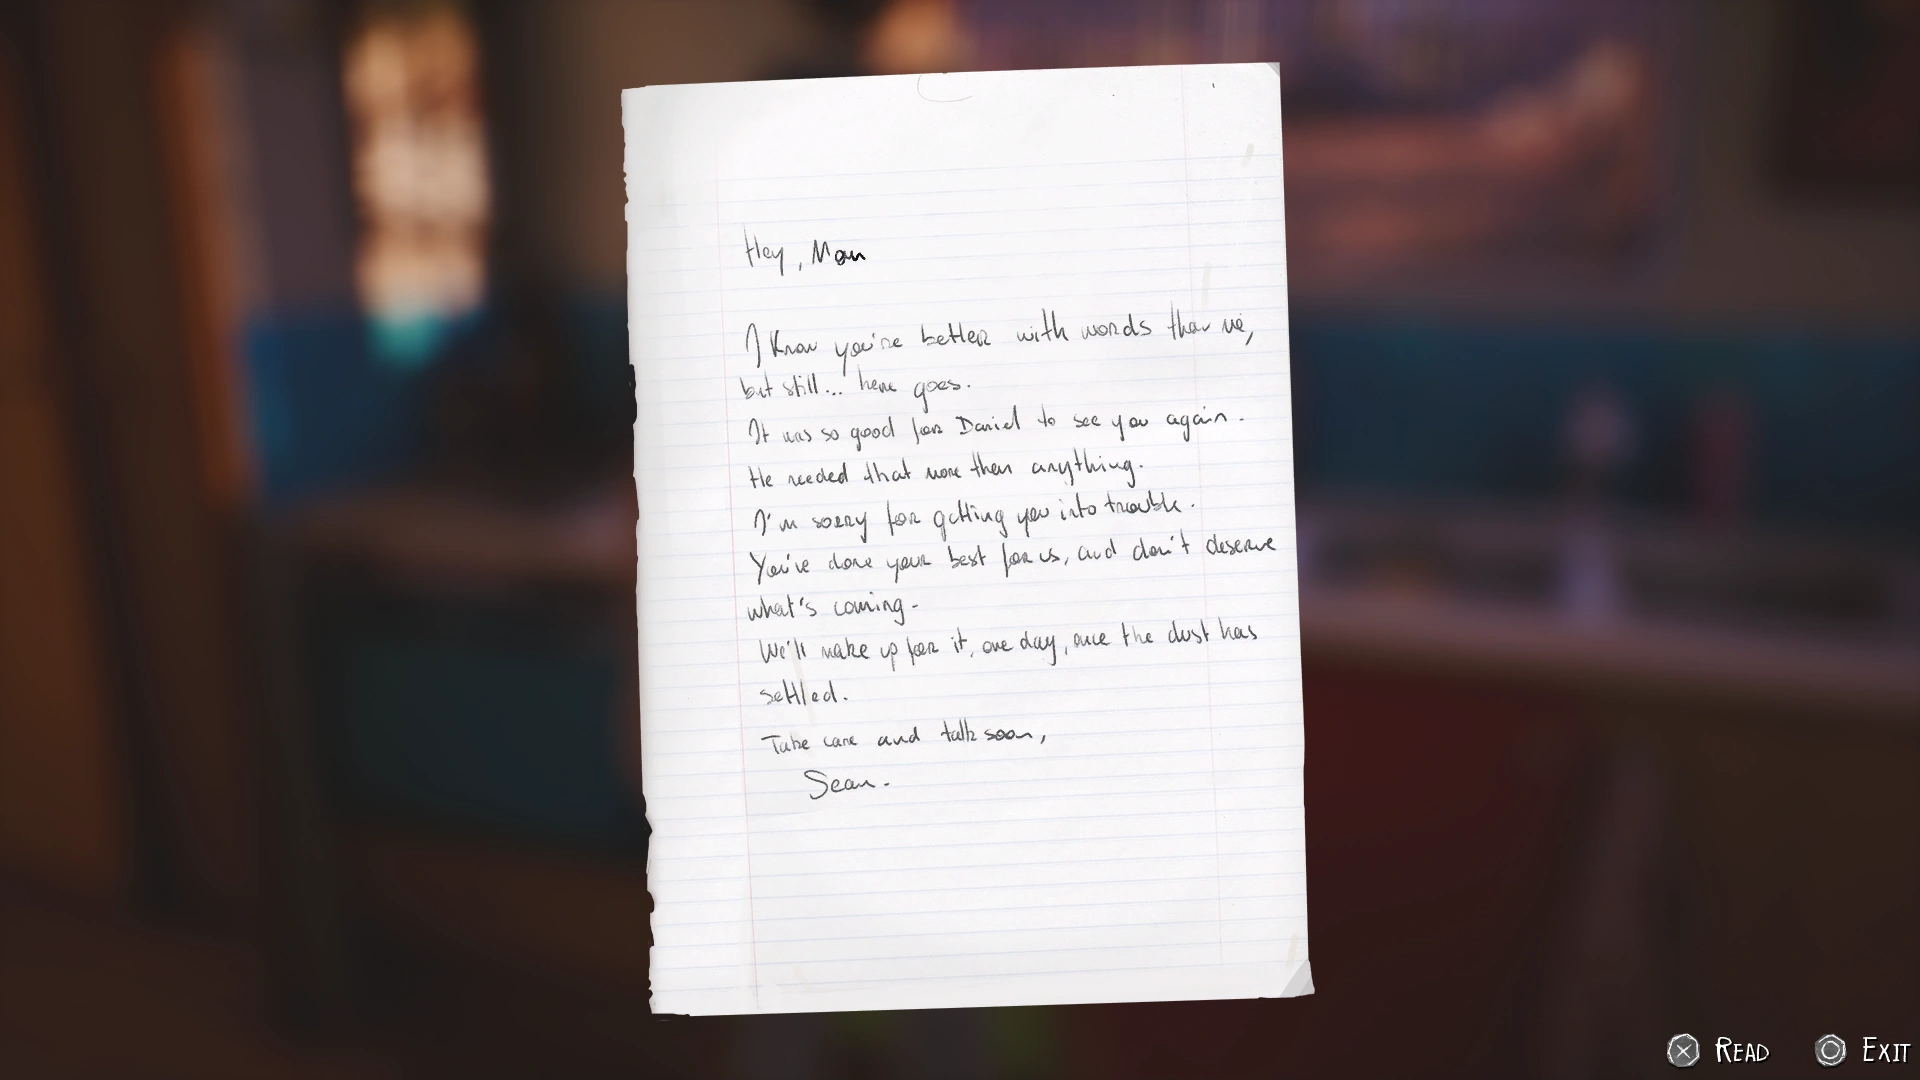 Hey, Mom
I know you're better with words than me,
but still... here goes.
It was so good for Daniel to see you again.
He needed that more then anything.
I'm sorry for getting you into trouble.
You've done your best for us, and don't deserve
what's coming.
We'll make up for it, one day, once the dust has
settled.
Take care and talk soon,
Sean.
READ
EXIT